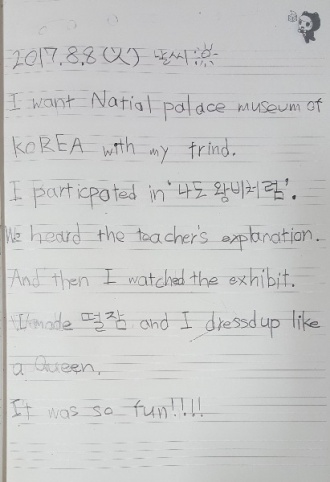 2017.8.8 (火) 날씨
I want Natial palace museum of
KOREA with my frind.
I particpated in '나도 왕비처럼'.
We heard the teacher's explanation.
And then I watched the exhibit.
I made 떨잠 and I dressd up like
a Queen.
It was so fun!!!!